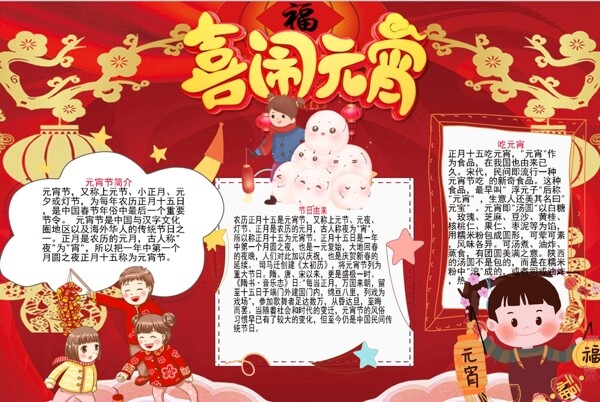 福
喜闹元宵
元宵节简介
元宵节，又称上元节、小正月、元
夕或灯节，为每年农历正月十五日
，是中国春节年俗中最后一个重要
节令。 元宵节是中国与汉字文化
圈地区以及海外华人的传统节日之
一。正月是农历的元月，古人称“
夜”为“宵”，所以把一年中第一个
月圆之夜正月十五称为元宵节。
节日由来
农历正月十五是元宵节，又称为上元节、元夜、
灯节。正月是农历的元月，古人称夜为“宵”，
所以称正月十五为元宵节。正月十五日是一年
中第一个月圆之夜，也是一元复始，大地回春
的夜晚，人们对此加以庆祝，也是庆贺新春的
延续。 司马迁创建《太初历》，将元宵节列为
重大节日。隋、唐、宋以来，更是盛极一时。
《隋书·音乐志》日：“每当正月，万国来朝，留
至十五日于端门外建国门内，绵亘八里，列戏为
戏场”，参加歌舞者足达数万，从昏达旦，至晦
而罢。当随着社会和时代的变迁，元宵节的风俗
习惯早已有了较大的变化，但至今仍是中国民间传
统节日。
吃元宵
正月十五吃元宵，“元宵”作
为食品，在我国也由来已
久。宋代，民间即流行一种
元宵节吃 的新奇食品。这种
食品，最早叫“浮元子”后称
“元宵”，生意人还美其名曰“
元宝”。元宵即“汤圆”以白糖
、玫瑰、芝麻、豆沙、黄桂、
核桃仁、果仁、枣泥等为馅，
用糯米粉包成圆形，可荤可素
，风味各异。可汤煮、油炸、
蒸食，有团圆美满之意。陕西
的汤圆不是包的，而是在糯米
粉中“滚”成的，或煮司或油炸，
热
元宵
福